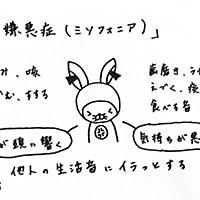 嫌悪症（ミソフォニア）」
み、咳
かむ、すする
歯磨き、うが
えづく、夜
食べる音
が頭に響く
気持ちが悪
他人の生活音にイラっとする